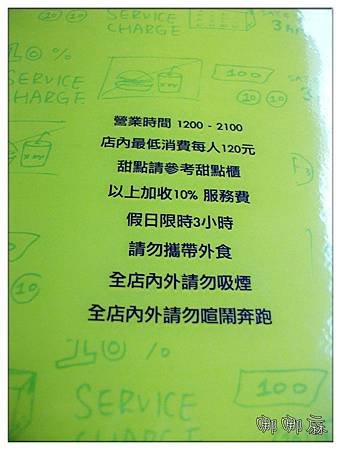 SERVICE
CHARGE
3
10 %
SERVICE
CHARGE
100
10 10
營業時間 1200 - 2100
店內最低消費每人120元
甜點請參考甜點櫃
以上加收10% 服務費
假日限時3小時
請勿攜帶外食
全店內外請勿吸煙
全店內外請勿喧鬧奔跑
10
10 %
100
SERVICE
CHARGE